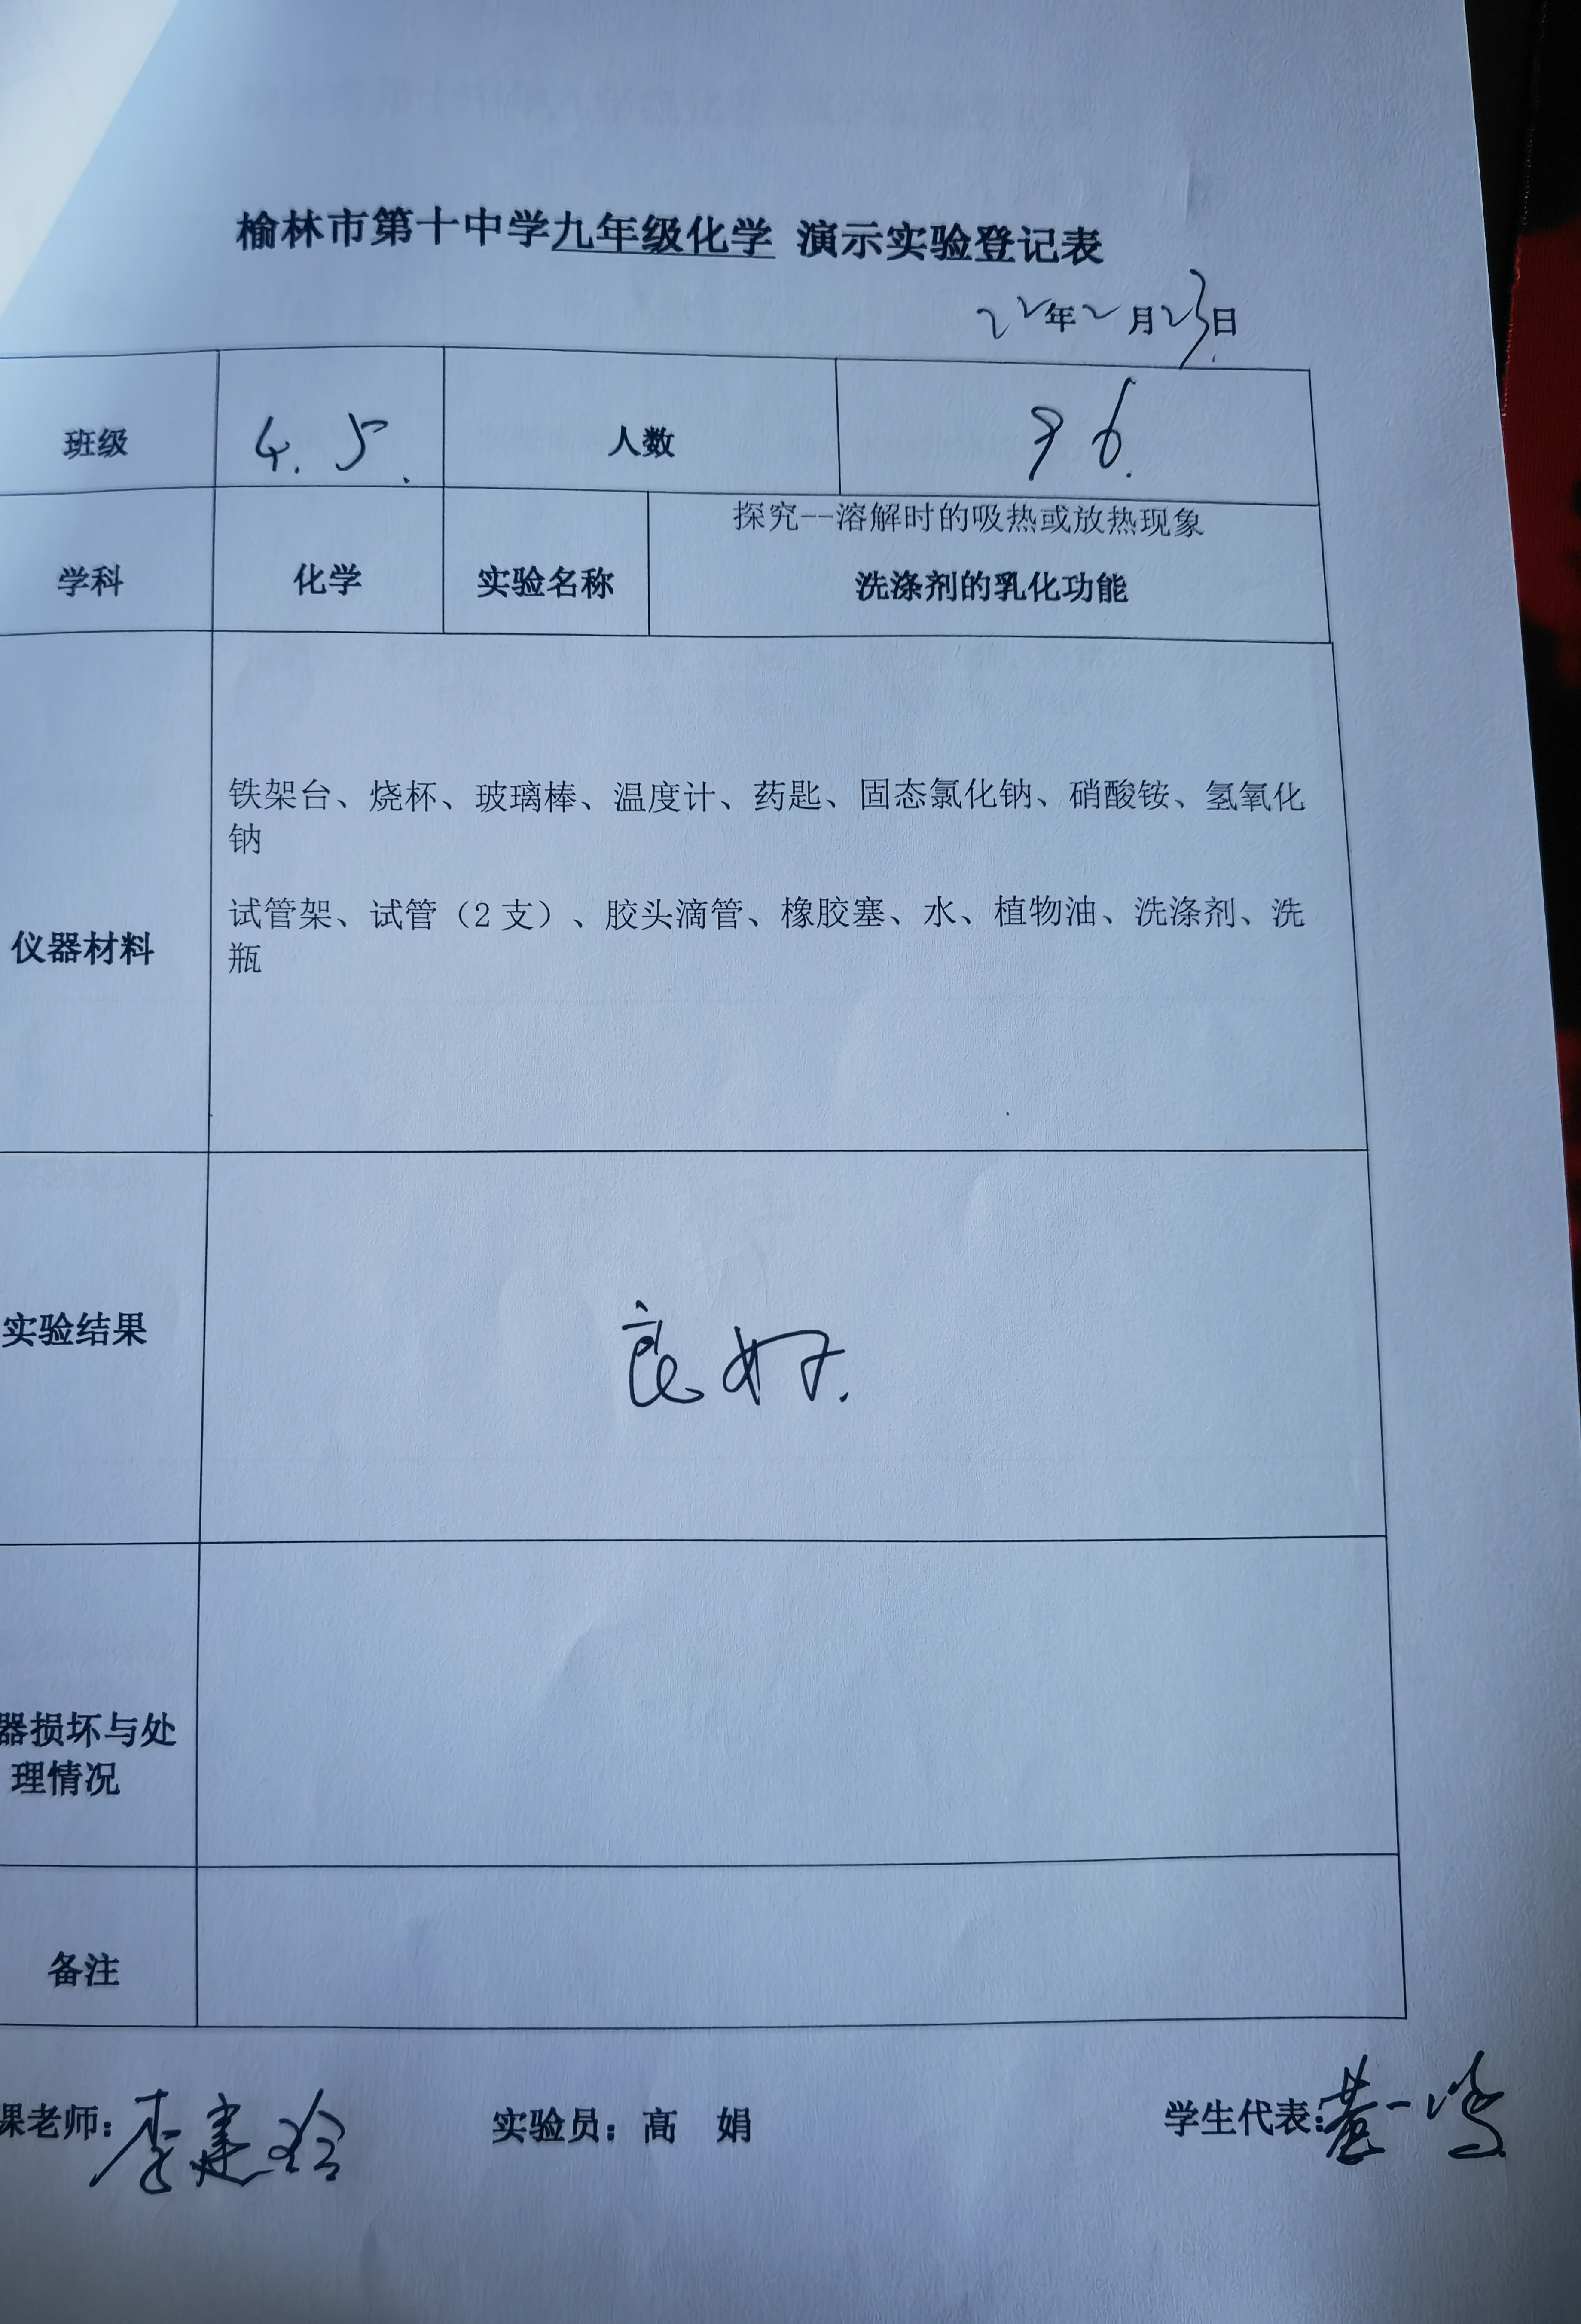 榆林市第十中学九年级化学 演示实验登记表
22年2月23日
班级 4.5. 人数 96.
学科 化学 实验名称 探究--溶解时的吸热或放热现象
洗涤剂的乳化功能
仪器材料
铁架台、烧杯、玻璃棒、温度计、药匙、固态氯化钠、硝酸铵、氢氧化
钠
试管架、试管（2支）、胶头滴管、橡胶塞、水、植物油、洗涤剂、洗
瓶
实验结果 良好.
器损坏与处
理情况
备注
课老师：李建玲 实验员：高 娟 学生代表：黄一鸣